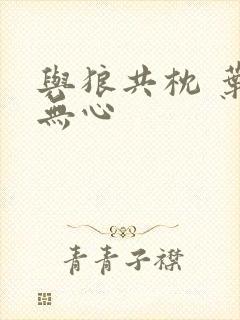 與狼共枕 葉
無心
青青子襟